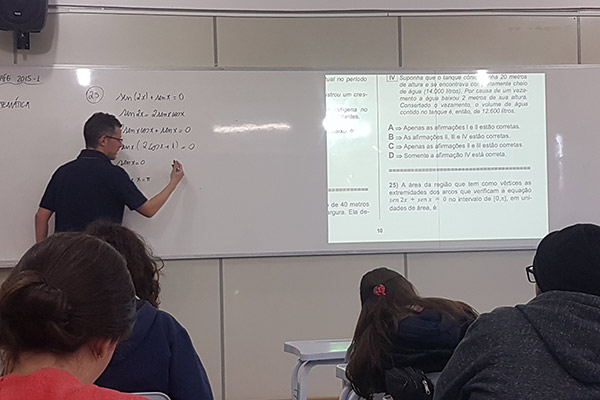 2015-1
25)
sen(2x) + senx = 0
sen 2x = 2senxcosx
2senxcosx + senx = 0
senx (2cosx + 1) = 0
senx = 0
x = π
tual no período
strou um cres-
ndígena no
de 40 metros
argura. Ela de-
IV Suponha que o tanque cônico tenha 20 metros
de altura e se encontrava completamente cheio
de água (14.000 litros). Por causa de um vaza-
mento a água baixou 2 metros de sua altura.
Consertado o vazamento, o volume de água
contido no tanque é, então, de 12.600 litros.
A ⇒ Apenas as afirmações I e II estão corretas.
B ⇒ As afirmações II, III e IV estão corretas.
C ⇒ Apenas as afirmações II e III estão corretas.
D ⇒ Somente a afirmação IV está correta.
25) A área da região que tem como vértices as
extremidades dos arcos que verificam a equação
sen 2x + sen x = 0 no intervalo de [0,π], em uni-
dades de área, é:
10